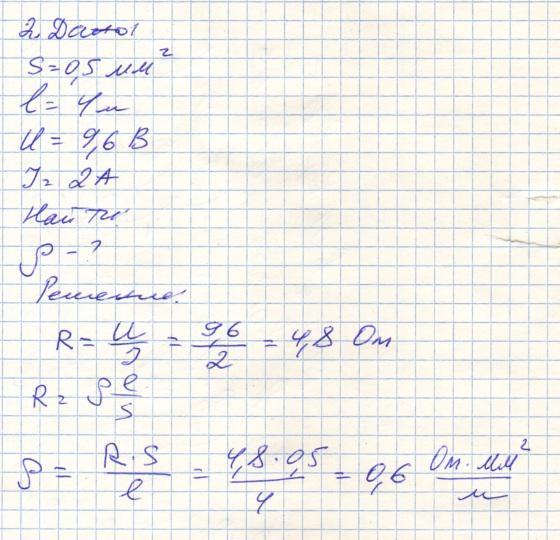 2. Дано:
S = 0,5 мм²
l = 4 м
U = 9,6 В
I = 2 А
Найти:
ρ - ?
Решение:
R = U/I = 9,6/2 = 4,8 Ом
R = ρ l/S
ρ = R·S/l = 4,8·0,5/4 = 0,6 Ом·мм²/м